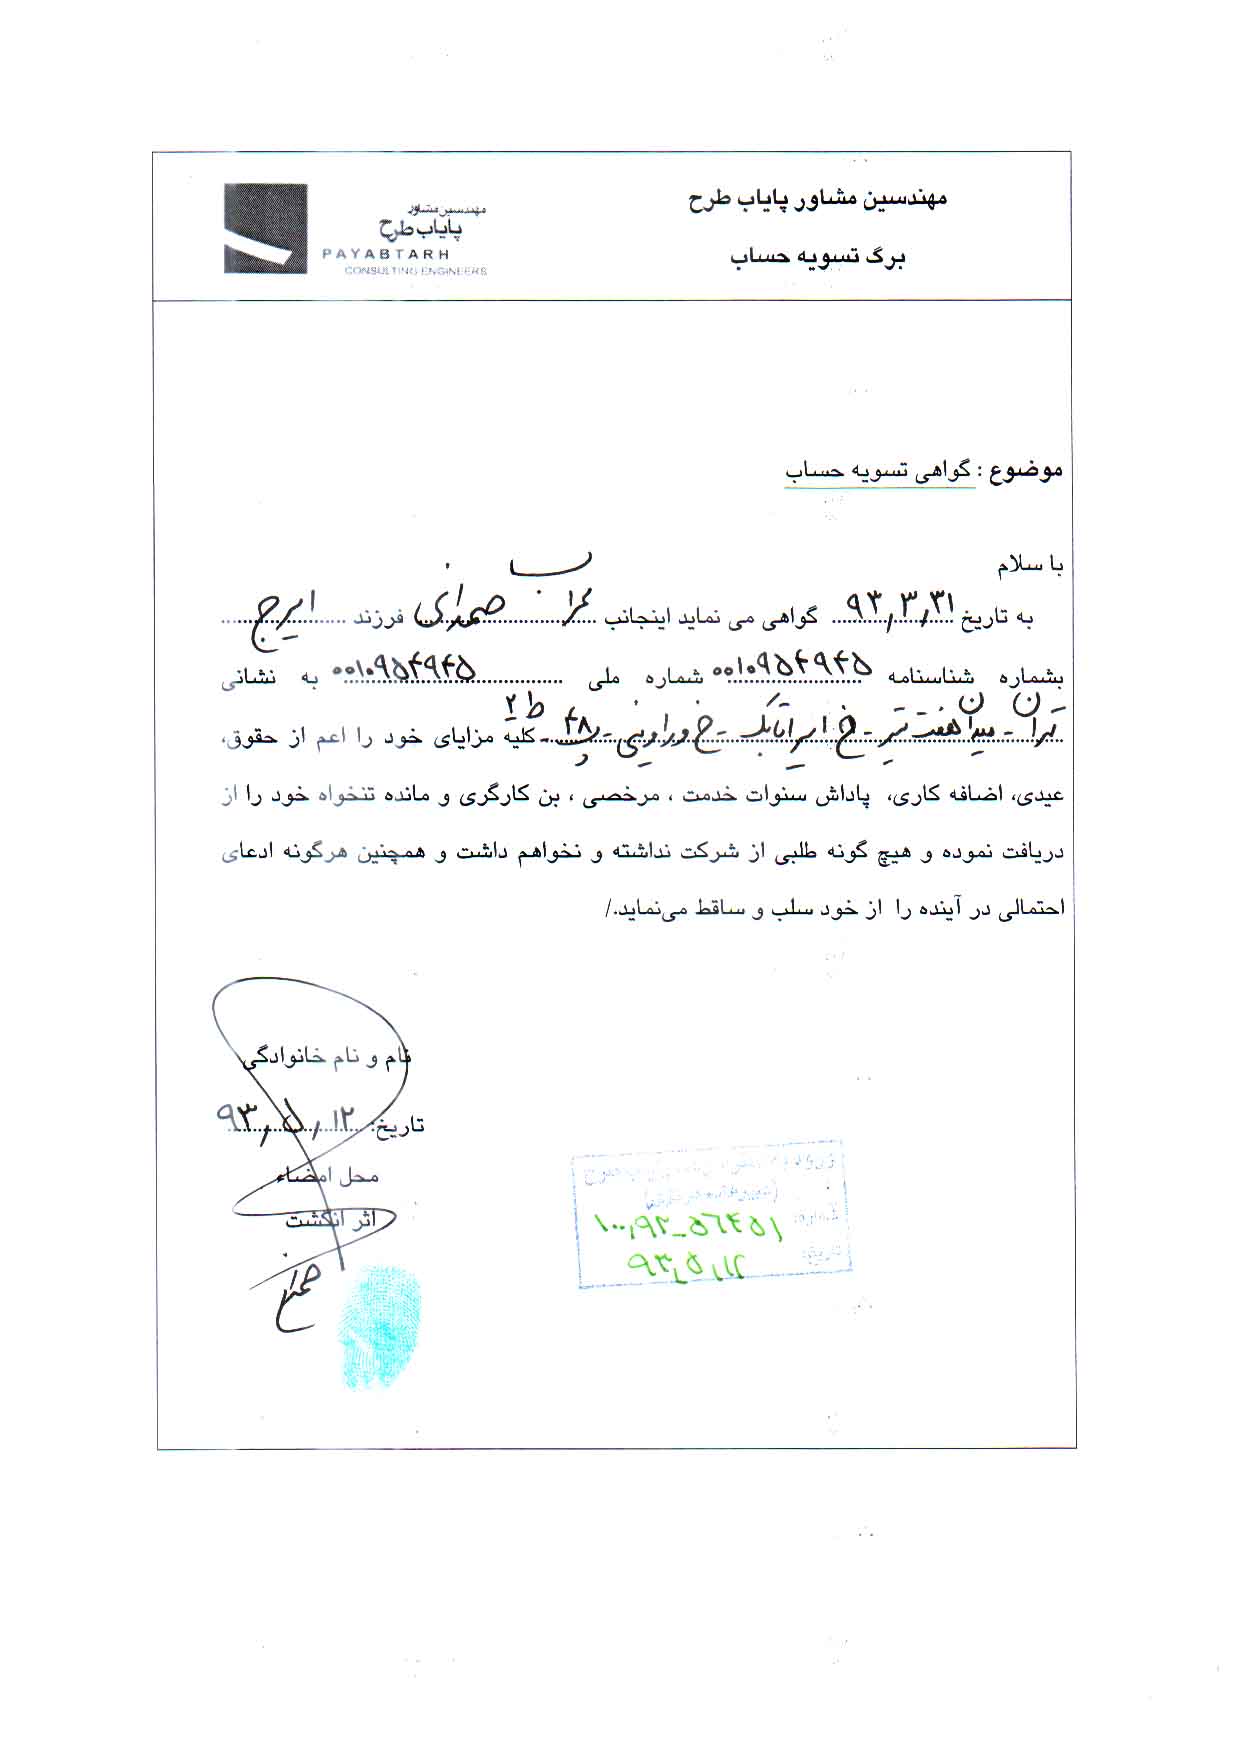 مهندسین مشاور پایاب طرح
برگ تسویه حساب
مهندسین مشاور
پایاب طرح
PAYABTARH
CONSULTING ENGINEERS
موضوع : گواهی تسویه حساب
با سلام
به تاریخ ۹۳,۳,۳۱ گواهی می نماید اینجانب فرزند ایرج
بشماره شناسنامه ۰۰۱۰۹۵۴۹۴۵ شماره ملی ۰۰۱۰۹۵۴۹۴۵ به نشانی
تهران - میدان هفت تیر - خ - خ وراوینی - پ ۴۸ ط ۲ - کلیه مزایای خود را اعم از حقوق،
عیدی، اضافه کاری، پاداش سنوات خدمت ، مرخصی ، بن کارگری و مانده تنخواه خود را از
دریافت نموده و هیچ گونه طلبی از شرکت نداشته و نخواهم داشت و همچنین هرگونه ادعای
احتمالی در آینده را از خود سلب و ساقط می‌نماید./
نام و نام خانوادگی
تاریخ: ۹۳,۵,۱۲
محل امضاء
اثر انگشت
شماره: ۱۰۰,۹۲_۵۶۴۵۱
تاریخ: ۹۳,۵,۱۲